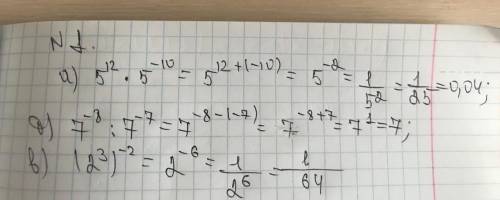 N 1.
а) 5¹² · 5⁻¹⁰ = 5¹²⁺⁽⁻¹⁰⁾ = 5⁻² = 1/5² = 1/25 = 0,04;
б) 7⁻⁸ : 7⁻⁷ = 7⁻⁸⁻⁽⁻⁷⁾ = 7⁻⁸⁺⁷ = 7¹ = 7;
в) (2³)⁻² = 2⁻⁶ = 1/2⁶ = 1/64